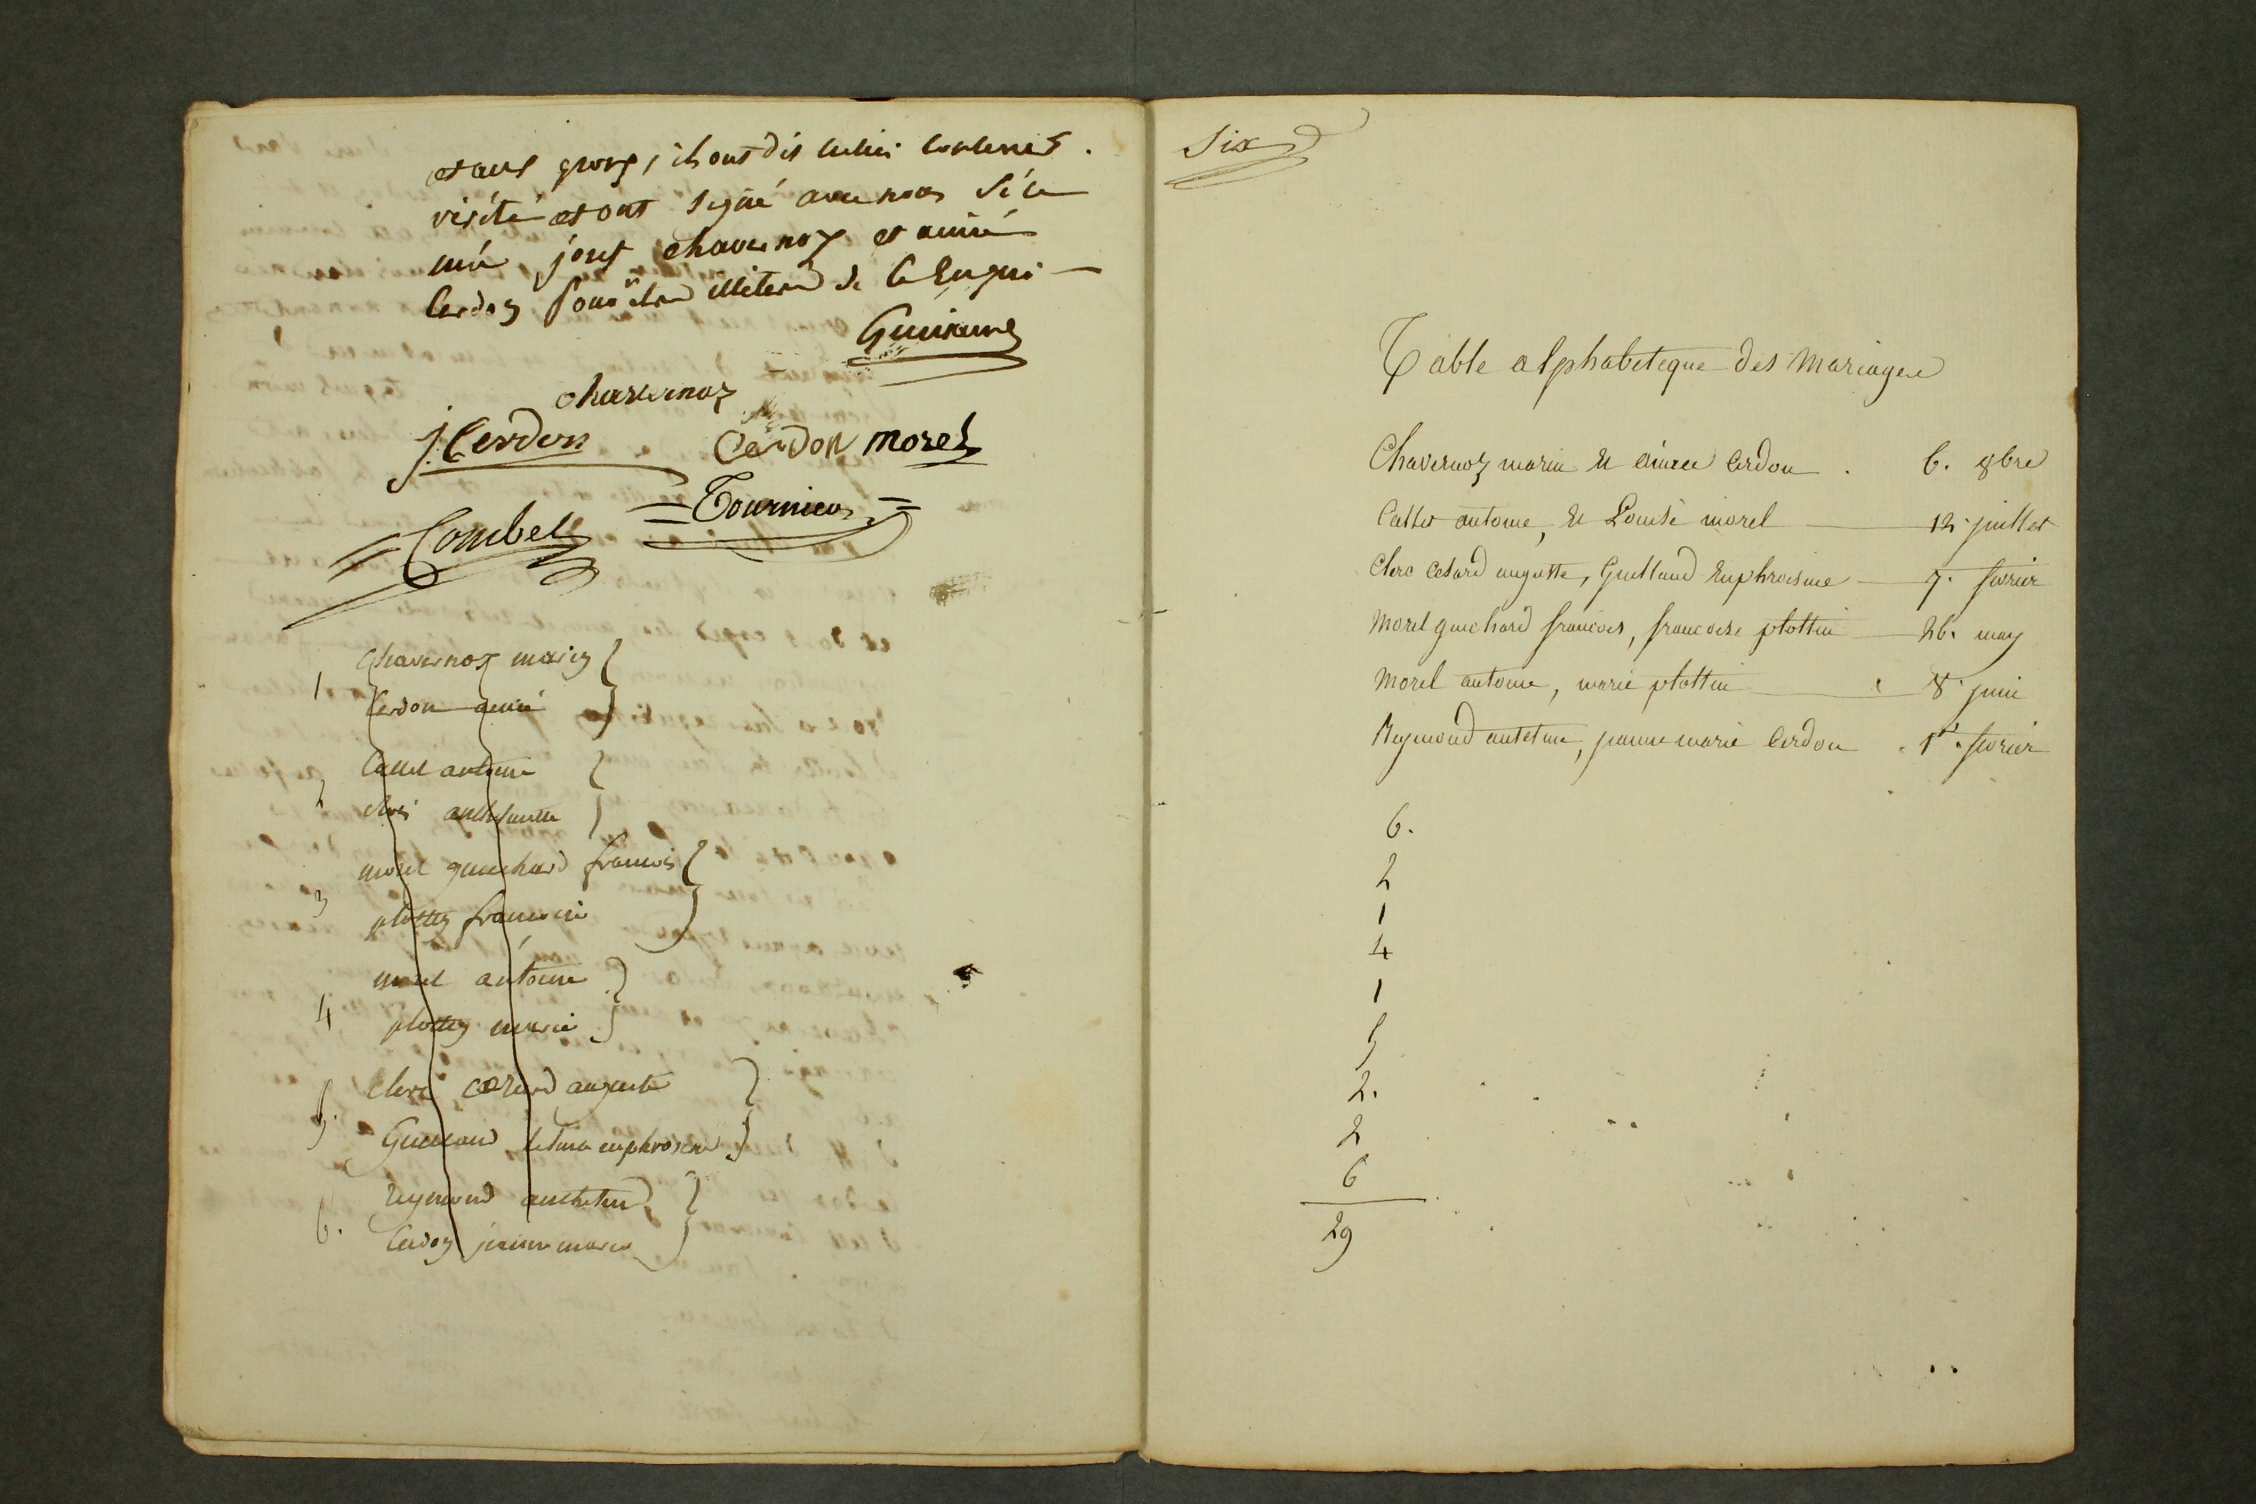 et aux gros, ils ont dit
visité et ont signé avec nous
chavernoz et aimé
Cerdon illiteré de ce enquis
chavernoz
j. Cerdon Cerdon morel
Tournier
Combet
1 Chavernoz marin
Cerdon aimé
2 Callet antoine
3 morel guichard francois
plottin francoise
4 morel antoine
plottin marie
5. Clerc cæzard auguste
euphrosine
6. Reymond
Cerdon jeanne marie
Six
Table alphabeteque des mariages
Chavernoz marin et aimée Cerdon 6. 8bre
Callet antoine, et Louise morel 12 juillet
Clerc Cesard auguste, Guilland Euphrosine 7. fevrier
Morel guichard francois, francoise plottin 26. may
Morel antoine, marie plottin 8 juin
Reymond antelme, jeanne marie Cerdon 1er fevrier
6.
2
1
4
1
5
2.
2
6
29